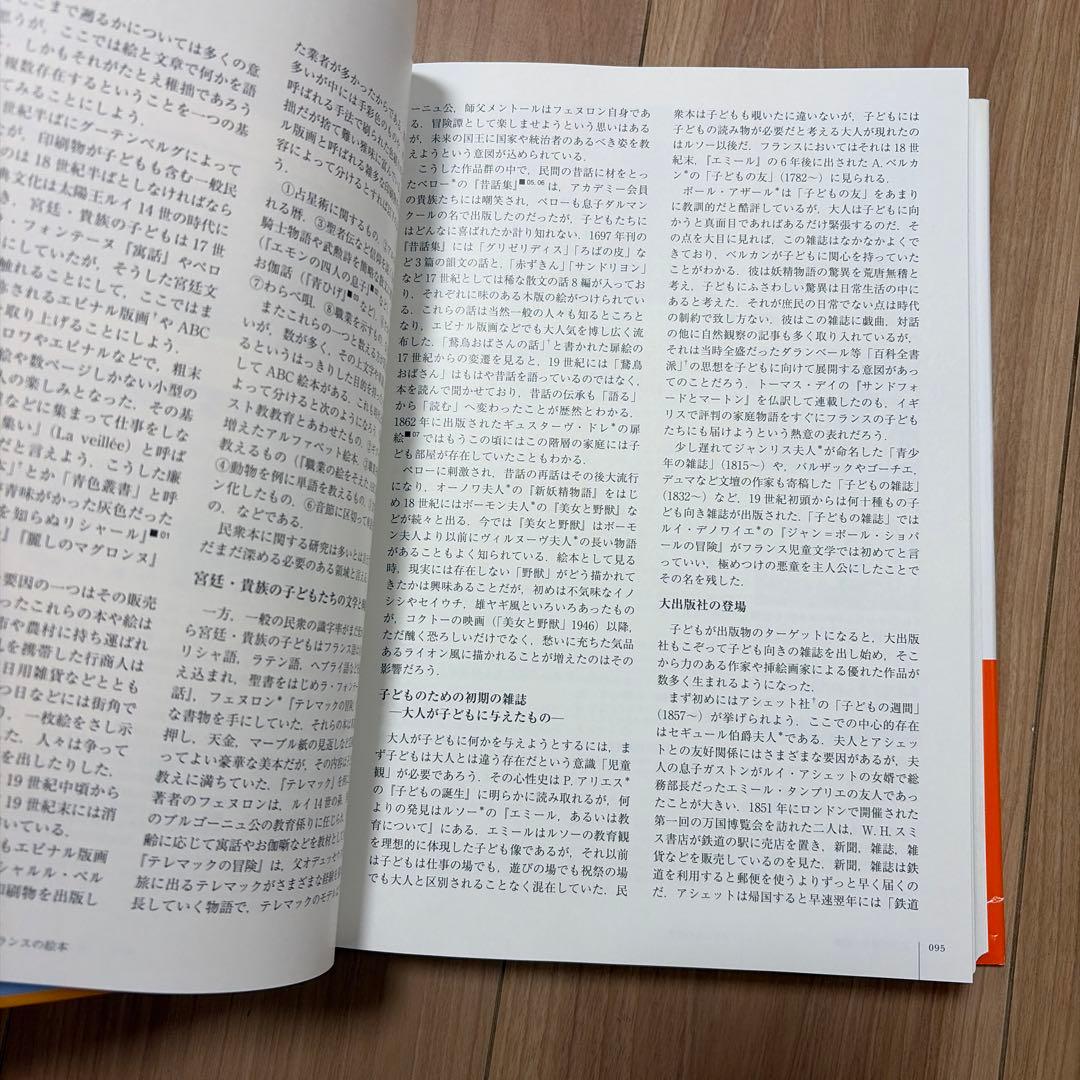 ここまで遡るかについては多くの意
思うが，ここでは絵と文章で何かを語
，しかもそれがたとえ稚拙であろう
複数存在するということを一つの基
てみることにしよう．
世紀半ばにグーテンベルグによって
が，印刷物が子どもも含む一般民
のは 18 世紀半ばとしなければなら
典文化は太陽王ルイ 14 世の時代に
き，宮廷・貴族の子どもは 17 世
・フォンテーヌ『寓話』やペロ
にしていたが，そうした宮廷文
触れることにして，ここではま
称されるエピナル版画†や ABC
取り上げることにしよう．
ロワやエピナルなどで，粗末
絵や数ページしかない小型の
人の楽しみとなった．その基
村などに集まって仕事をしな
集い」(La veillée) と呼ば
だと言えよう．こうした廉
本」とか「青色叢書」と呼
青味がかった灰色だった
を知らぬリシャール」■01
」「麗しのマグロンヌ」
要因の一つはその販売
ったこれらの本や絵は
市や農村に持ち運ばれ
を携帯した行商人は
日用雑貨などととも
つ日などには街角で
．一枚絵をさし示
た．人々は争って
を出したりした．
19 世紀中頃から
19 世紀末には消
いている．
もエピナル版画
シャルル・ペル
印刷物を出版し
ランスの絵本
た業者が多かったからで
多いが中には手彩色のもの
呼ばれる手法で刷られた
拙だが捨て難い雅味に富
ル版画と呼ばれる雑多な
容によって分けるとすれば
①占星術に関するもの，
れる暦，③聖者伝など信仰を
騎士物語や武勲詩を簡略な
(『エモンの四人の息子』■
お伽話（『青ひげ』■
⑦わらべ唄，⑧職業を示すもの，
またこれらの一つと数える
いが，数が多く，その上文字や
るというはっきりした目的を持っ
して ABC 絵本がある．これも
よって分けると次のようになろう
スト教教育とあわせたもの，
増えたアルファベット絵本，
教えるもの（『職業の絵をそえた
④動物を例に単語を教えるもの，
ン化したもの，⑥音節に区切って
の，などである．
民衆本に関する研究は多いとは
だまだ深める必要のある領域と言え
宮廷・貴族の子どもたちの文学と
一方，一般の民衆の識字率がまだ
ら宮廷・貴族の子どもはフランス語は
リシャ語，ラテン語，ヘブライ語な
え込まれ，聖書をはじめラ・フォンテー
話』，フェヌロン*『テレマックの冒険』
な書物を手にしていた．それらの本は
押し，天金，マーブル紙の見返しなど
ってよい豪華な美本だが，その内容は
教えに満ちていた．『テレマック』を例
著者のフェヌロンは，ルイ14世の孫，
のブルゴーニュ公の教育係りに任じられ
齢に応じて寓話やお伽噺などを教材とし
『テレマックの冒険』は，父オデュッセウ
旅に出るテレマックがさまざまな経験を
長していく物語で，テレマックのモデルは
ーニュ公，師父メントールはフェヌロン自身であ
る．冒険譚として楽しませようという思いはある
が，未来の国王に国家や統治者のあるべき姿を教
えようという意図が込められている．
こうした作品群の中で，民間の昔話に材をとっ
たペロー*の『昔話集』■05, 06 は，アカデミー会員
の貴族たちには嘲笑され，ペローも息子ダルマン
クールの名で出版したのだったが，子どもたちに
はどんなに喜ばれたか計り知れない．1697 年刊の
『昔話集』には「グリゼリディス」「ろばの皮」な
ど 3 篇の韻文の話と，「赤ずきん」「サンドリヨン」
など 17 世紀としては稀な散文の話 8 編が入ってお
り，それぞれに味のある木版の絵がつけられてい
る．これらの話は当然一般の人々も知るところと
なり，エピナル版画などでも大人気を博し広く流
布した．「鵞鳥おばさんの話」†と書かれた扉絵の
17 世紀からの変遷を見ると，19 世紀には「鵞鳥
おばさん」はもはや昔話を語っているのではなく，
本を読んで聞かせており，昔話の伝承も「語る」
から「読む」へ変わったことが歴然とわかる．
1862 年に出版されたギュスターヴ・ドレ*の扉
絵■07 ではもうこの頃にはこの階層の家庭には子ど
も部屋が存在していたこともわかる．
ペローに刺激され，昔話の再話はその後大流行
になり，オーノワ夫人*の『新妖精物語』をはじ
め 18 世紀にはボーモン夫人*の『美女と野獣』な
どが続々と出る．今では『美女と野獣』はボーモ
ン夫人より以前にヴィルヌーヴ夫人*の長い物語
があることもよく知られている．絵本として見る
時，現実には存在しない「野獣」がどう描かれて
きたかは興味あることだが，初めは不気味なイノ
シシやセイウチ，雄ヤギ風といろいろあったもの
が，コクトーの映画（『美女と野獣』1946）以降，
ただ醜く恐ろしいだけでなく，愁いに充ちた気品
あるライオン風に描かれることが増えたのはその
影響だろう．
子どものための初期の雑誌
—大人が子どもに与えたもの—
大人が子どもに何かを与えようとするには，ま
ず子どもは大人とは違う存在だという意識「児童
観」が必要であろう．その心性史は P. アリエス*
の『子どもの誕生』に明らかに読み取れるが，何
よりの発見はルソー*の『エミール，あるいは教
育について』にある．エミールはルソーの教育観
を理想的に体現した子ども像であるが，それ以前
は子どもは仕事の場でも，遊びの場でも祝祭の場
でも大人と区別されることなく混在していた．民
衆本は子どもも覗いたに違いないが，子どもには
子どもの読み物が必要だと考える大人が現れたの
はルソー以後だ．フランスにおいてはそれは 18 世
紀末，『エミール』の 6 年後に出された A. ベルカ
ン*の『子どもの友』(1782〜) に見られる．
ポール・アザール*は『子どもの友』をあまり
に教訓的だと酷評しているが，大人は子どもに向
かうと真面目であればあるだけ緊張するのだ．そ
の点を大目に見れば，この雑誌はなかなかよくで
きており，ベルカンが子どもに関心を持っていた
ことがわかる．彼は妖精物語の驚異を荒唐無稽と
考え，子どもにふさわしい驚異は日常生活の中に
あると考えた．それが庶民の日常でない点は時代
の制約で致し方ない．彼はこの雑誌に戯曲，対話
の他に自然観察の記事も多く取り入れているが，
それは当時全盛だったダランベール等「百科全書
派」†の思想を子どもに向けて展開する意図があっ
てのことだろう．トーマス・デイの『サンドフォ
ードとマートン』を仏訳して連載したのも，イギ
リスで評判の家庭物語をすぐにフランスの子ども
たちにも届けようという熱意の表れだろう．
少し遅れてジャンリス夫人*が命名した『青少
年の雑誌』(1815〜) や，バルザックやゴーチエ，
デュマなど文壇の作家も寄稿した『子どもの雑誌』
(1832〜) など，19 世紀初頭からは何十種もの子ど
も向き雑誌が出版された．『子どもの雑誌』では
ルイ・デノワイエ*の『ジャン=ポール・ショパ
ールの冒険』がフランス児童文学では初めてと言
っていい，極めつけの悪童を主人公にしたことで
その名を残した．
大出版社の登場
子どもが出版物のターゲットになると，大出版
社もこぞって子ども向きの雑誌を出し始め，そこ
から力のある作家や挿絵画家による優れた作品が
数多く生まれるようになった．
まず初めにはアシェット社†の『子どもの週間』
(1857〜) が挙げられよう．ここでの中心的存在
はセギュール伯爵夫人*である．夫人とアシェッ
トとの友好関係にはさまざまな要因があるが，夫
人の息子ガストンがルイ・アシェットの女婿で総
務部長だったエミール・タンプリエの友人であっ
たことが大きい．1851 年にロンドンで開催された
第一回の万国博覧会を訪れた二人は，W. H. スミ
ス書店が鉄道の駅に売店を置き，新聞，雑誌，雑
貨などを販売しているのを見た．新聞，雑誌は鉄
道を利用すると郵便を使うよりずっと早く届くの
だ．アシェットは帰国すると早速翌年には「鉄道
095